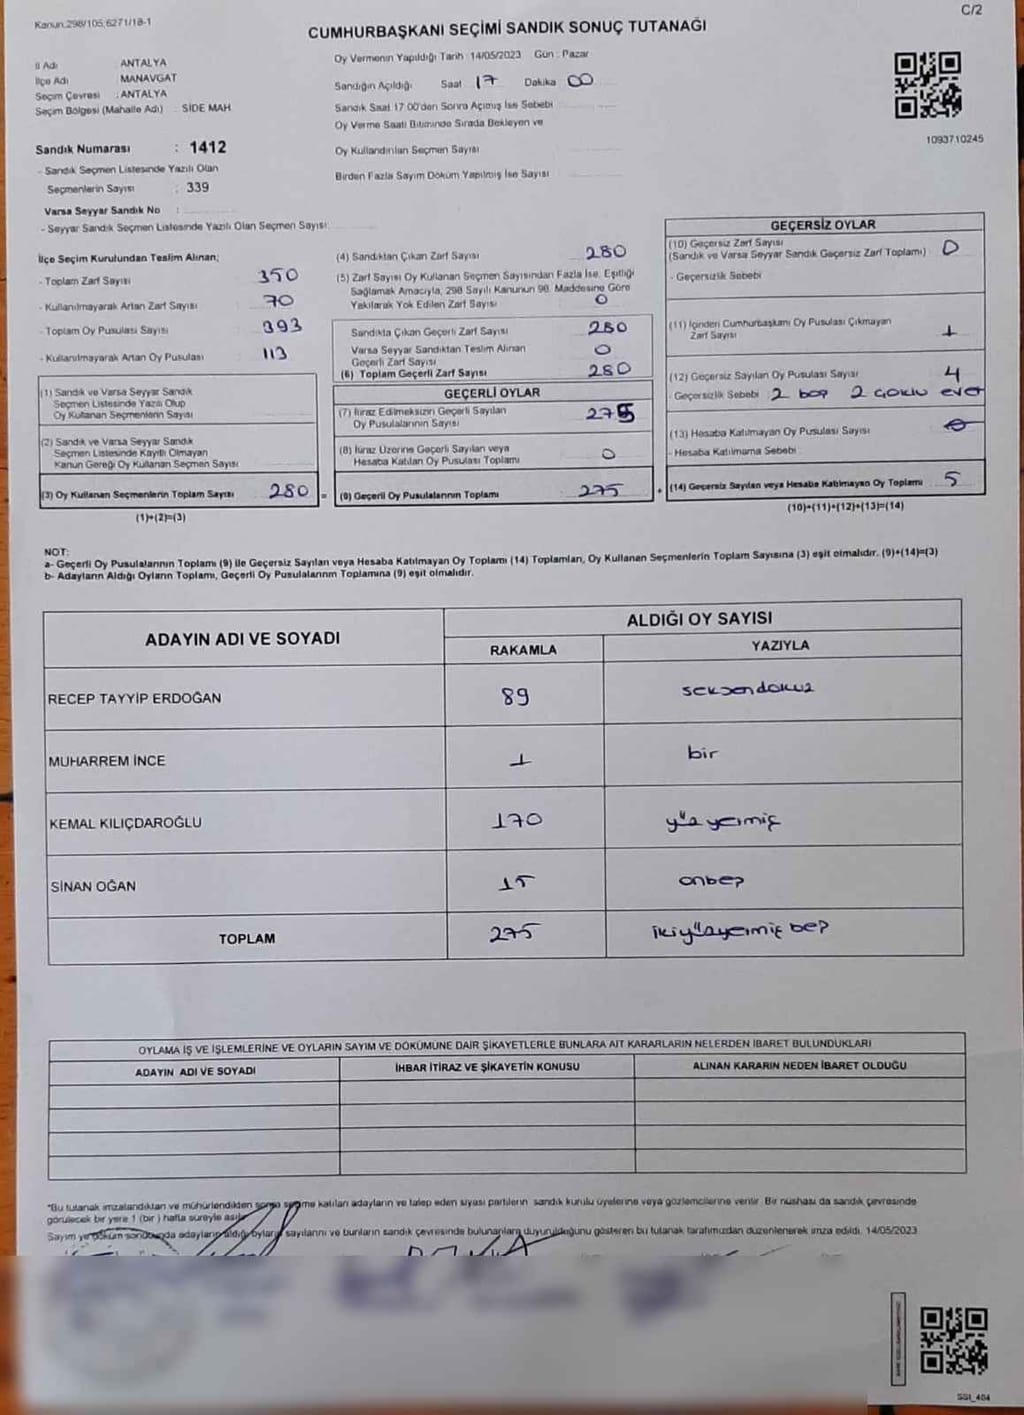 Kanun.298/105,6271/18-1
C/2
CUMHURBAŞKANI SEÇİMİ SANDIK SONUÇ TUTANAĞI
İl Adı ANTALYA
İlçe Adı : MANAVGAT
Seçim Çevresi : ANTALYA
Seçim Bölgesi (Mahalle Adı) : SİDE MAH.
Sandık Numarası : 1412
- Sandık Seçmen Listesinde Yazılı Olan
Seçmenlerin Sayısı : 339
Varsa Seyyar Sandık No :
- Seyyar Sandık Seçmen Listesinde Yazılı Olan Seçmen Sayısı:
Oy Vermenin Yapıldığı Tarih : 14/05/2023 Gün : Pazar
Sandığın Açıldığı Saat 17 Dakika 00
Sandık Saat 17.00'den Sonra Açılmış İse Sebebi
Oy Verme Saati Bitiminde Sırada Bekleyen ve
Oy Kullandırılan Seçmen Sayısı
Birden Fazla Sayım Döküm Yapılmış İse Sayısı
1093710245
İlçe Seçim Kurulundan Teslim Alınan;
- Toplam Zarf Sayısı 350
- Kullanılmayarak Artan Zarf Sayısı 70
- Toplam Oy Pusulası Sayısı 393
- Kullanılmayarak Artan Oy Pusulası 113
(1) Sandık ve Varsa Seyyar Sandık
Seçmen Listesinde Yazılı Olup
Oy Kullanan Seçmenlerin Sayısı
(2) Sandık ve Varsa Seyyar Sandık
Seçmen Listesinde Kayıtlı Olmayan
Kanun Gereği Oy Kullanan Seçmen Sayısı
(3) Oy Kullanan Seçmenlerin Toplam Sayısı 280 =
(1)+(2)=(3)
(4) Sandıktan Çıkan Zarf Sayısı 280
(5) Zarf Sayısı Oy Kullanan Seçmen Sayısından Fazla İse, Eşitliği
Sağlamak Amacıyla, 298 Sayılı Kanunun 98. Maddesine Göre
Yakılarak Yok Edilen Zarf Sayısı 0
Sandıkta Çıkan Geçerli Zarf Sayısı 280
Varsa Seyyar Sandıktan Teslim Alınan
Geçerli Zarf Sayısı 0
(6) Toplam Geçerli Zarf Sayısı 280
GEÇERLİ OYLAR
(7) İtiraz Edilmeksizin Geçerli Sayılan
Oy Pusulalarının Sayısı 275
(8) İtiraz Üzerine Geçerli Sayılan veya
Hesaba Katılan Oy Pusulası Toplamı 0
(9) Geçerli Oy Pusulalarının Toplamı 275 +
GEÇERSİZ OYLAR
(10) Geçersiz Zarf Sayısı
(Sandık ve Varsa Seyyar Sandık Geçersiz Zarf Toplamı) 0
- Geçersizlik Sebebi
(11) İçinden Cumhurbaşkanı Oy Pusulası Çıkmayan
Zarf Sayısı 1
(12) Geçersiz Sayılan Oy Pusulası Sayısı 4
- Geçersizlik Sebebi 2 boş 2 çoklu evet
(13) Hesaba Katılmayan Oy Pusulası Sayısı 0
- Hesaba Katılmama Sebebi
(14) Geçersiz Sayılan veya Hesaba Katılmayan Oy Toplamı 5
(10)+(11)+(12)+(13)=(14)
NOT:
a- Geçerli Oy Pusulalarının Toplamı (9) ile Geçersiz Sayılan veya Hesaba Katılmayan Oy Toplamı (14) Toplamları, Oy Kullanan Seçmenlerin Toplam Sayısına (3) eşit olmalıdır. (9)+(14)=(3)
b- Adayların Aldığı Oyların Toplamı, Geçerli Oy Pusulalarının Toplamına (9) eşit olmalıdır.
ADAYIN ADI VE SOYADI
ALDIĞI OY SAYISI
RAKAMLA YAZIYLA
RECEP TAYYİP ERDOĞAN 89 seksendokuz
MUHARREM İNCE 1 bir
KEMAL KILIÇDAROĞLU 170 yüzyetmiş
SİNAN OĞAN 15 onbeş
TOPLAM 275 ikiyüzyetmiş beş
OYLAMA İŞ VE İŞLEMLERİNE VE OYLARIN SAYIM VE DÖKÜMÜNE DAİR ŞİKAYETLERLE BUNLARA AİT KARARLARIN NELERDEN İBARET BULUNDUKLARI
ADAYIN ADI VE SOYADI İHBAR İTİRAZ VE ŞİKAYETİN KONUSU ALINAN KARARIN NEDEN İBARET OLDUĞU
*Bu tutanak imzalandıktan ve mühürlendikten sonra seçime katılan adayların ve talep eden siyasi partilerin sandık kurulu üyelerine veya gözlemcilerine verilir. Bir nüshası da sandık çevresinde
görülecek bir yere 1 (bir) hafta süreyle asılır.
Sayım ve döküm sonucunda adayların aldığı oyların sayılarını ve bunların sandık çevresinde bulunanlara duyurulduğunu gösteren bu tutanak tarafımızdan düzenlenerek imza edildi. 14/05/2023
SSI_404